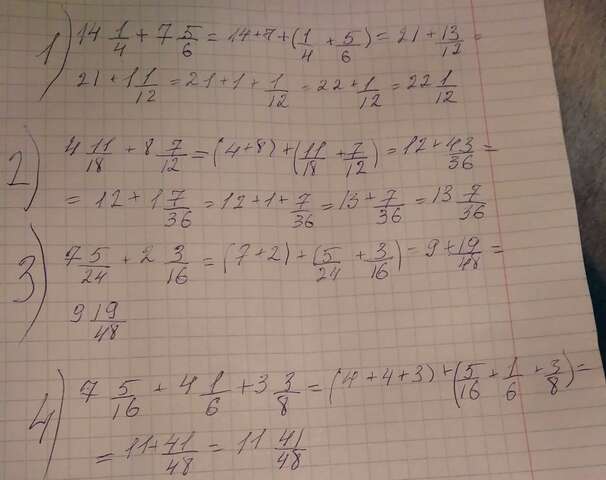 1) 14 1/4 + 7 5/6 = 14+7+(1/4 + 5/6) = 21 + 13/12 =
21 + 1 1/12 = 21+1+ 1/12 = 22 + 1/12 = 22 1/12
2) 4 11/18 + 8 7/12 = (4+8) + (11/18 + 7/12) = 12 + 43/36 =
= 12 + 1 7/36 = 12+1+ 7/36 = 13 + 7/36 = 13 7/36
3) 7 5/24 + 2 3/16 = (7+2) + (5/24 + 3/16) = 9 + 19/48 =
9 19/48
4) 7 5/16 + 4 1/6 + 3 3/8 = (4+4+3) + (5/16 + 1/6 + 3/8) =
= 11 + 41/48 = 11 41/48